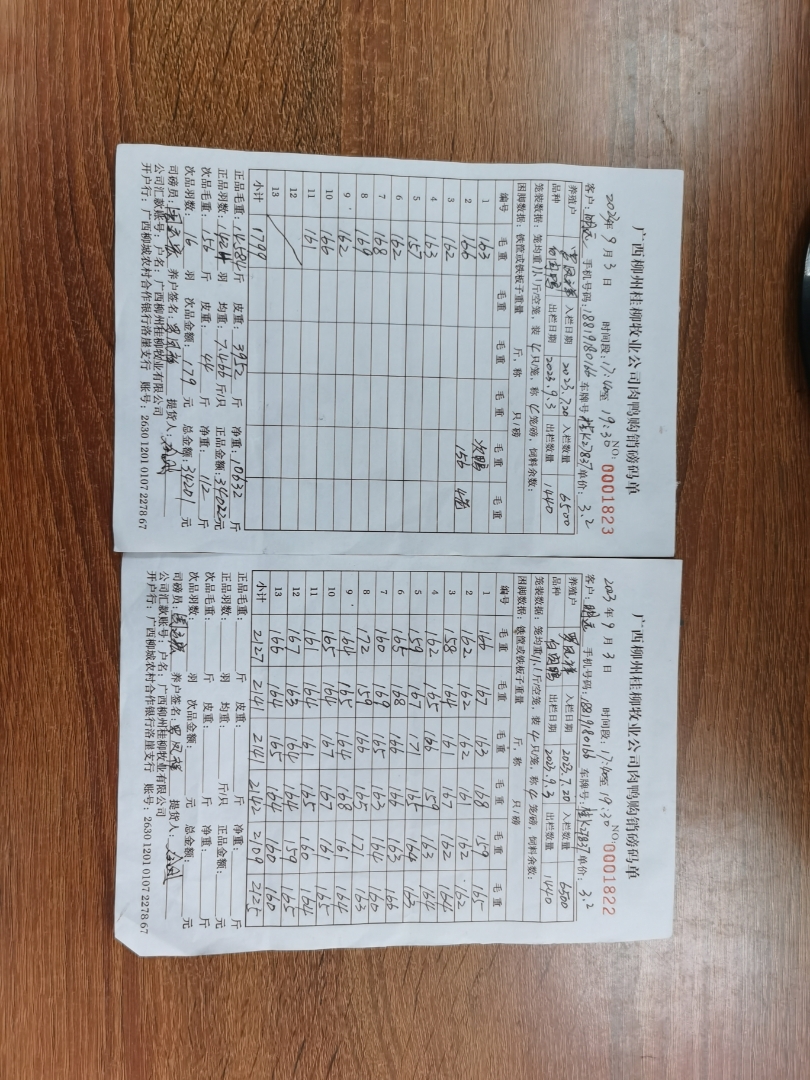 广西柳州桂柳牧业公司肉鸭购销磅码单
NO: 0001823
2023年9月3日 时间段: 17:40至19:30
客户: 手机号码: 18819180166 车牌号: 桂K27837 单价: 3.2
养殖户 罗凤祥 入栏日期 2023.7.20 入栏数量 6500
品种 白肉鸭 出栏日期 2023.9.3 出栏数量 1440
笼装数据: 笼均重11斤/空笼, 装4只/笼, 称4笼/磅, 饲料余数:
困脚数据: 铁馈或铁板子重量 斤, 称 只/磅
编号 毛重 毛重 毛重 毛重 毛重 毛重
1 163 次鸭
2 166 156 4笼
3 162
4 163
5 157
6 162
7 168
8 169
9 162
10 166
11 161
12
13
小计 1799
正品毛重: 14584斤 皮重: 3952斤 净重: 10632斤
正品羽数: 1424羽 均重: 7.466斤/只 正品金额: 34022元
次品毛重: 156斤 皮重: 44斤 净重: 112斤
次品羽数: 16羽 次品金额: 179元 总金额: 34201元
司磅员: 养户签名: 罗凤祥 提货人:
公司汇款账号: 户名: 广西柳州桂柳牧业有限公司
开户行: 广西柳城农村合作银行洛崖支行 账号: 2630 1201 0107 2278 67
广西柳州桂柳牧业公司肉鸭购销磅码单
NO: 0001822
2023年9月3日 时间段: 17:40至19:30
客户: 手机号码: 18819180166 车牌号: 桂K27837 单价: 3.2
养殖户 罗凤祥 入栏日期 2023.7.20 入栏数量 6500
品种 白肉鸭 出栏日期 2023.9.3 出栏数量 1440
笼装数据: 笼均重11斤/空笼, 装4只/笼, 称4笼/磅, 饲料余数:
困脚数据: 铁馈或铁板子重量 斤, 称 只/磅
编号 毛重 毛重 毛重 毛重 毛重 毛重
1 166 167 163 168 159 165
2 162 162 162 161 162 162
3 158 164 161 167 162 164
4 162 165 166 159 163 164
5 159 167 171 165 164 163
6 165 168 166 166 163 166
7 160 169 165 163 164 160
8 172 159 166 165 171 163
9 164 165 164 168 161 164
10 165 164 167 167 161 165
11 161 164 161 165 160 164
12 167 163 164 164 159 165
13 166 164 165 164 160 160
小计 2127 2141 2141 2142 2109 2125
正品毛重: 斤 皮重: 斤 净重: 斤
正品羽数: 羽 均重: 斤/只 正品金额: 元
次品毛重: 斤 皮重: 斤 净重: 斤
次品羽数: 羽 次品金额: 元 总金额: 元
司磅员: 养户签名: 罗凤祥 提货人:
公司汇款账号: 户名: 广西柳州桂柳牧业有限公司
开户行: 广西柳城农村合作银行洛崖支行 账号: 2630 1201 0107 2278 67